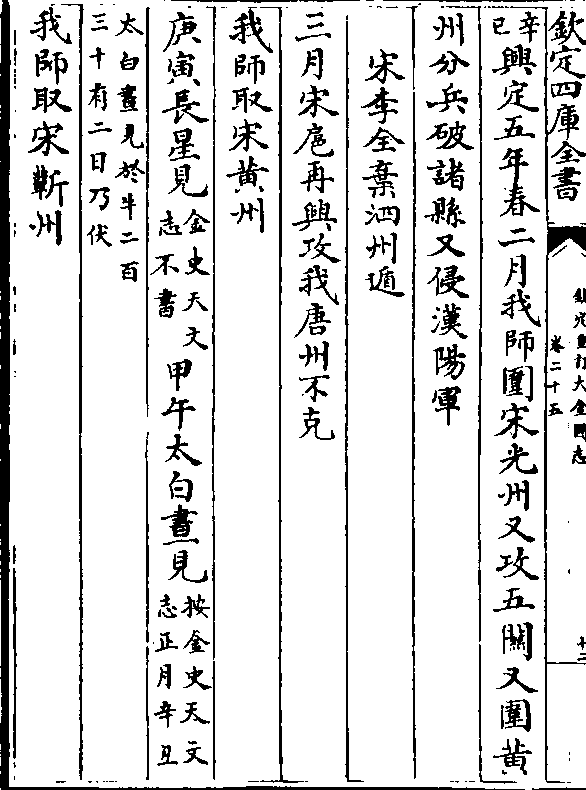 欽定四庫全書
欽定重訂大金國志
卷二十五
十二
辛巳興定五年春二月我師圍宋光州又攻五關又圍黃
州分兵破諸縣又侵漢陽軍
宋李全棄泗州遁
三月宋扈再興攻我唐州不克
我師取宋黃州
庚寅長星見金史天文志不書甲午太白晝見按金史天文志正月辛丑
太白晝見於牛二百三十有二日乃伏
我師取宋蘄州